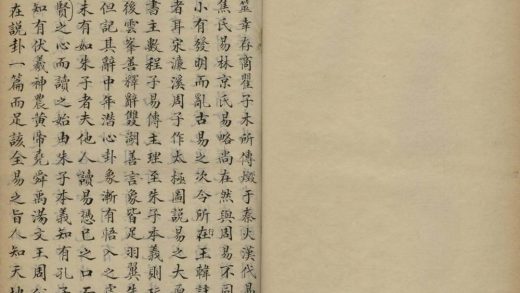 筮幸存商瞿子木所傳燬于秦火漢代易
焦氏易林京氏易略尚在然與周易不同
小有發明而亂古易之次今所在王韓註
者耳宋濂溪周子作太極圖說易之大原
書主數程子易傳主理至朱子本義則
後雲峯善釋辭雙湖善言象皆足羽翼朱
但記其辭中年潛心卦象漸有悟入之處
未有如朱子者夫他人讀易憑己之口
賢之心而讀之始由朱子本義知有孔子
知有伏羲神農黃帝堯舜禹湯文王周公
在說卦一篇而足該全易之旨人知天地